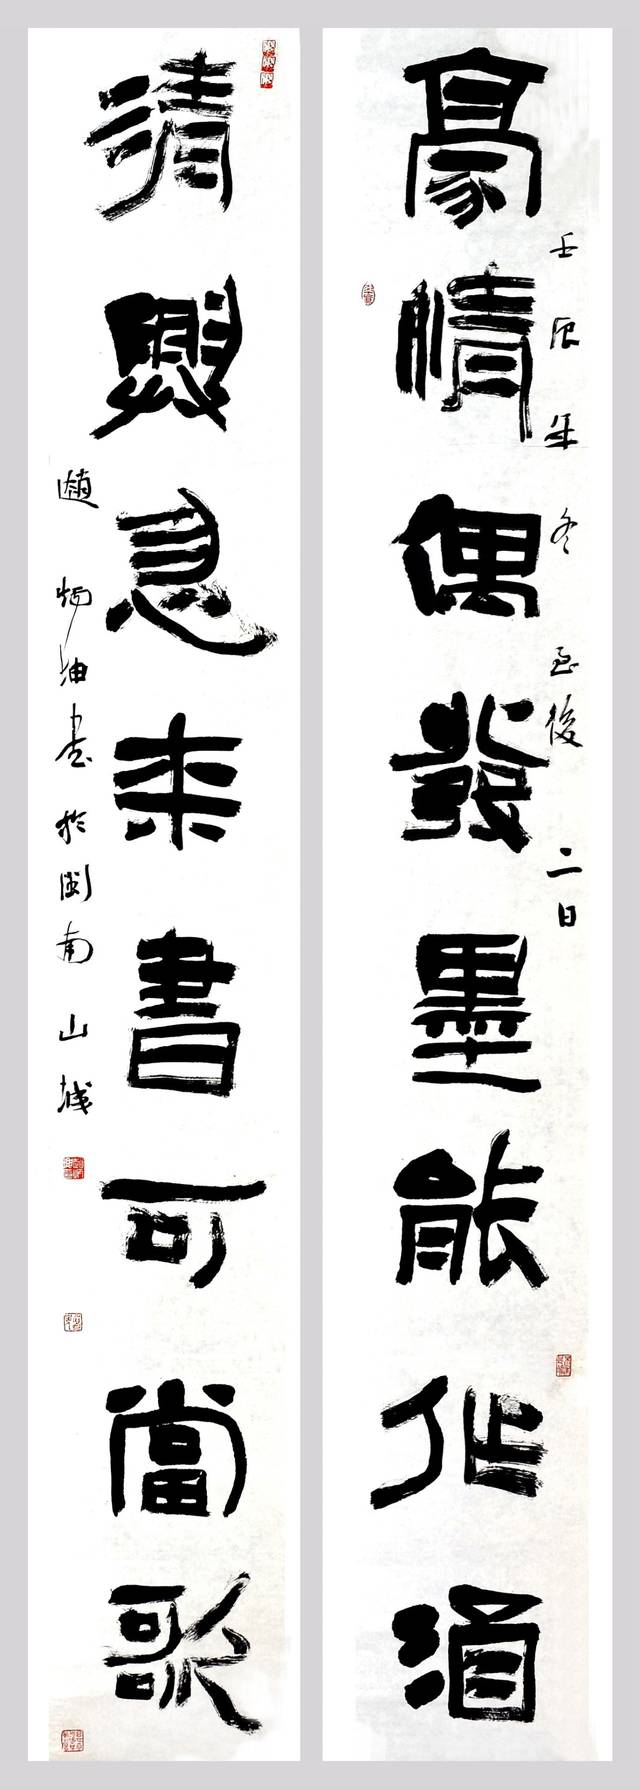 壬辰年冬至後二日
豪情偶發墨能作酒
清興急來書可當歌
趙炳油書於閩南山城